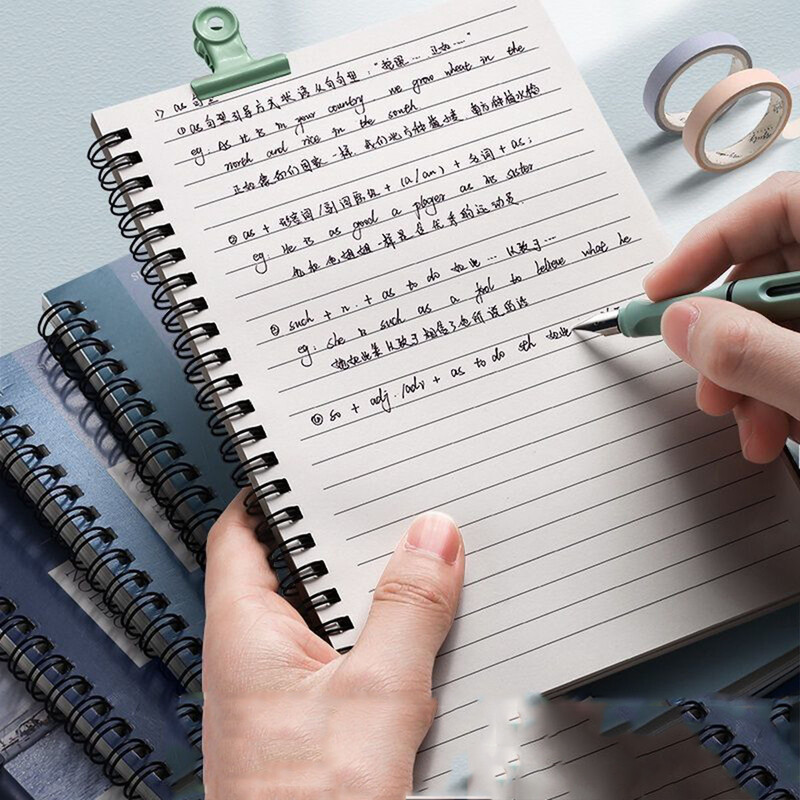 1) as 句型
① as 句型引导方式状语从句句型："按照…正如…"
eg. As it is in your country we grow wheat in the
north and rice in the south
正如像你们国家一样,我们北方种植小麦,南方种植水稻
② as + 形容词/副词原级 + (a/an) + 名词 + as:
eg: He is as good a player as his sister
他和他姐姐一样是个优秀的运动员.
③ such + n. + as to do 如此…以致于…
eg: she is such as a fool to believe what he
她如此笨以致于相信了他所说的话
④ so + adj./adv + as to do sth 如此
NOTEBOOK